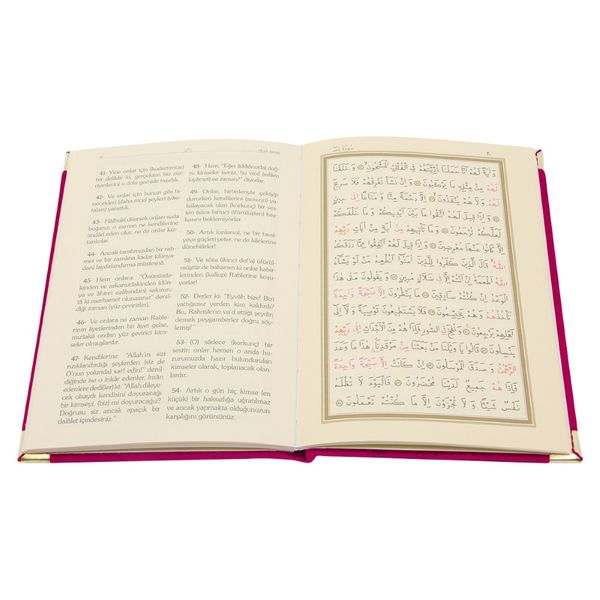 41- Yine onlar için (kudretimize)
bir delildir ki, gerçekten biz zür-
riyetlerini o dolu gemide taşıdık.
42- Ve onlar için bunun gibi
binecekleri (daha nice) şeyleri
yarattık.
43- Hâlbuki dilersek onları suda
boğarız; o zaman ne kendilerine
imdâd eden olur, ne de onlar kur-
tarılırlar.
44- Ancak tarafımızdan bir rah-
met ve bir zamâna kadar (dünya-
dan) faydalandırma müstesnâ.
45- Hem onlara: "Önünüzde-
kinden ve arkanızdakinden (dün-
ya ve âhiret azâbından) sakının;
tâ ki merhamet olunasınız" denil-
diği zaman (yüz çevirirler).
46- Ve onlara ne zaman Rable-
rinin âyetlerinden bir âyet gelse,
mutlaka ondan yüz çevirici kim-
seler olmuşlardır.
47- Kendilerine: "Allah'ın sizi
rızıklandırdığı şeylerden (Allah
O'nun yolunda) sarf edin!" denil-
diğinde ise o inkâr edenler, îmân
edenlere dediler ki: "Allah dileye-
cek olsaydı kendisini doyuracağı
bir kimseyi, (biz) mi doyuracağız?
Doğrusu siz ancak apaçık bir
dalâlet içindesiniz."
48- Hem, "Eğer (iddiânızda) doğ-
ru kimseler iseniz, bu vaad (edilen
kıyâmet) ne zaman?" diyorlar.
49- Onlar, birbirleriyle çekişip
dururlarken kendilerini (ansızın) ya-
kalayacak olan (korkunç) bir ses-
ten (sûra birinci üfürülüşten) baş-
kasını beklemiyorlar.
50- Artık (onların), ne bir tavsi-
yeye güçleri yeter, ne de âilelerine
dönebilirler!
51- Ve sûra (ikinci def'a) üfürül-
müştür de bakarsın ki onlar kabir-
lerinden (kalkıp) Rablerine koşu-
yorlar.
52- Derler ki: "Eyvâh bize! Bizi
yattığımız yerden kim kaldırdı?
Bu, Rahmân'ın va'd ettiği şeydir;
demek peygamberler doğru söyle-
miş!"
53- (O) sâdece (korkunç) bir
sestir; onlar hemen o anda hu-
zurumuzda hazır bulundurulan
kimseler olarak, toplanacak olan-
lardır.
54- Artık o gün hiç kimse (en
küçük) bir haksızlığa uğratılmaz
ve ancak yapmakta olduğunuzun
karşılığını görürsünüz.
وَاٰيَةٌ لَهُمْ اَنَّا حَمَلْنَا ذُرِّيَّتَهُمْ فِي الْفُلْكِ الْمَشْحُونِ ۞ وَخَلَقْنَا
لَهُمْ مِنْ مِثْلِهِ مَا يَرْكَبُونَ ۞ وَاِنْ نَشَأْ نُغْرِقْهُمْ فَلَا صَرِيخَ
لَهُمْ وَلَا هُمْ يُنْقَذُونَ ۞ اِلَّا رَحْمَةً مِنَّا وَمَتَاعًا اِلٰى حِينٍ
۞ وَاِذَا قِيلَ لَهُمُ اتَّقُوا مَا بَيْنَ اَيْدِيكُمْ وَمَا خَلْفَكُمْ
لَعَلَّكُمْ تُرْحَمُونَ ۞ وَمَا تَأْتِيهِمْ مِنْ اٰيَةٍ مِنْ اٰيَاتِ رَبِّهِمْ
اِلَّا كَانُوا عَنْهَا مُعْرِضِينَ ۞ وَاِذَا قِيلَ لَهُمْ اَنْفِقُوا مِمَّا رَزَقَكُمُ
اللّٰهُ قَالَ الَّذِينَ كَفَرُوا لِلَّذِينَ اٰمَنُوا اَنُطْعِمُ مَنْ لَوْ يَشَاءُ
اللّٰهُ اَطْعَمَهُ اِنْ اَنْتُمْ اِلَّا فِي ضَلَالٍ مُبِينٍ ۞ وَيَقُولُونَ مَتٰى هٰذَا
الْوَعْدُ اِنْ كُنْتُمْ صَادِقِينَ ۞ مَا يَنْظُرُونَ اِلَّا صَيْحَةً وَاحِدَةً
تَأْخُذُهُمْ وَهُمْ يَخِصِّمُونَ ۞ فَلَا يَسْتَطِيعُونَ تَوْصِيَةً وَلَا اِلٰى
اَهْلِهِمْ يَرْجِعُونَ ۞ وَنُفِخَ فِي الصُّورِ فَاِذَا هُمْ مِنَ الْاَجْدَاثِ اِلٰى رَبِّهِمْ
يَنْسِلُونَ ۞ قَالُوا يَا وَيْلَنَا مَنْ بَعَثَنَا مِنْ مَرْقَدِنَا هٰذَا مَا وَعَدَ
الرَّحْمٰنُ وَصَدَقَ الْمُرْسَلُونَ ۞ اِنْ كَانَتْ اِلَّا صَيْحَةً وَاحِدَةً
فَاِذَا هُمْ جَمِيعٌ لَدَيْنَا مُحْضَرُونَ ۞ فَالْيَوْمَ لَا تُظْلَمُ
نَفْسٌ شَيْئًا وَلَا تُجْزَوْنَ اِلَّا مَا كُنْتُمْ تَعْمَلُونَ ۞